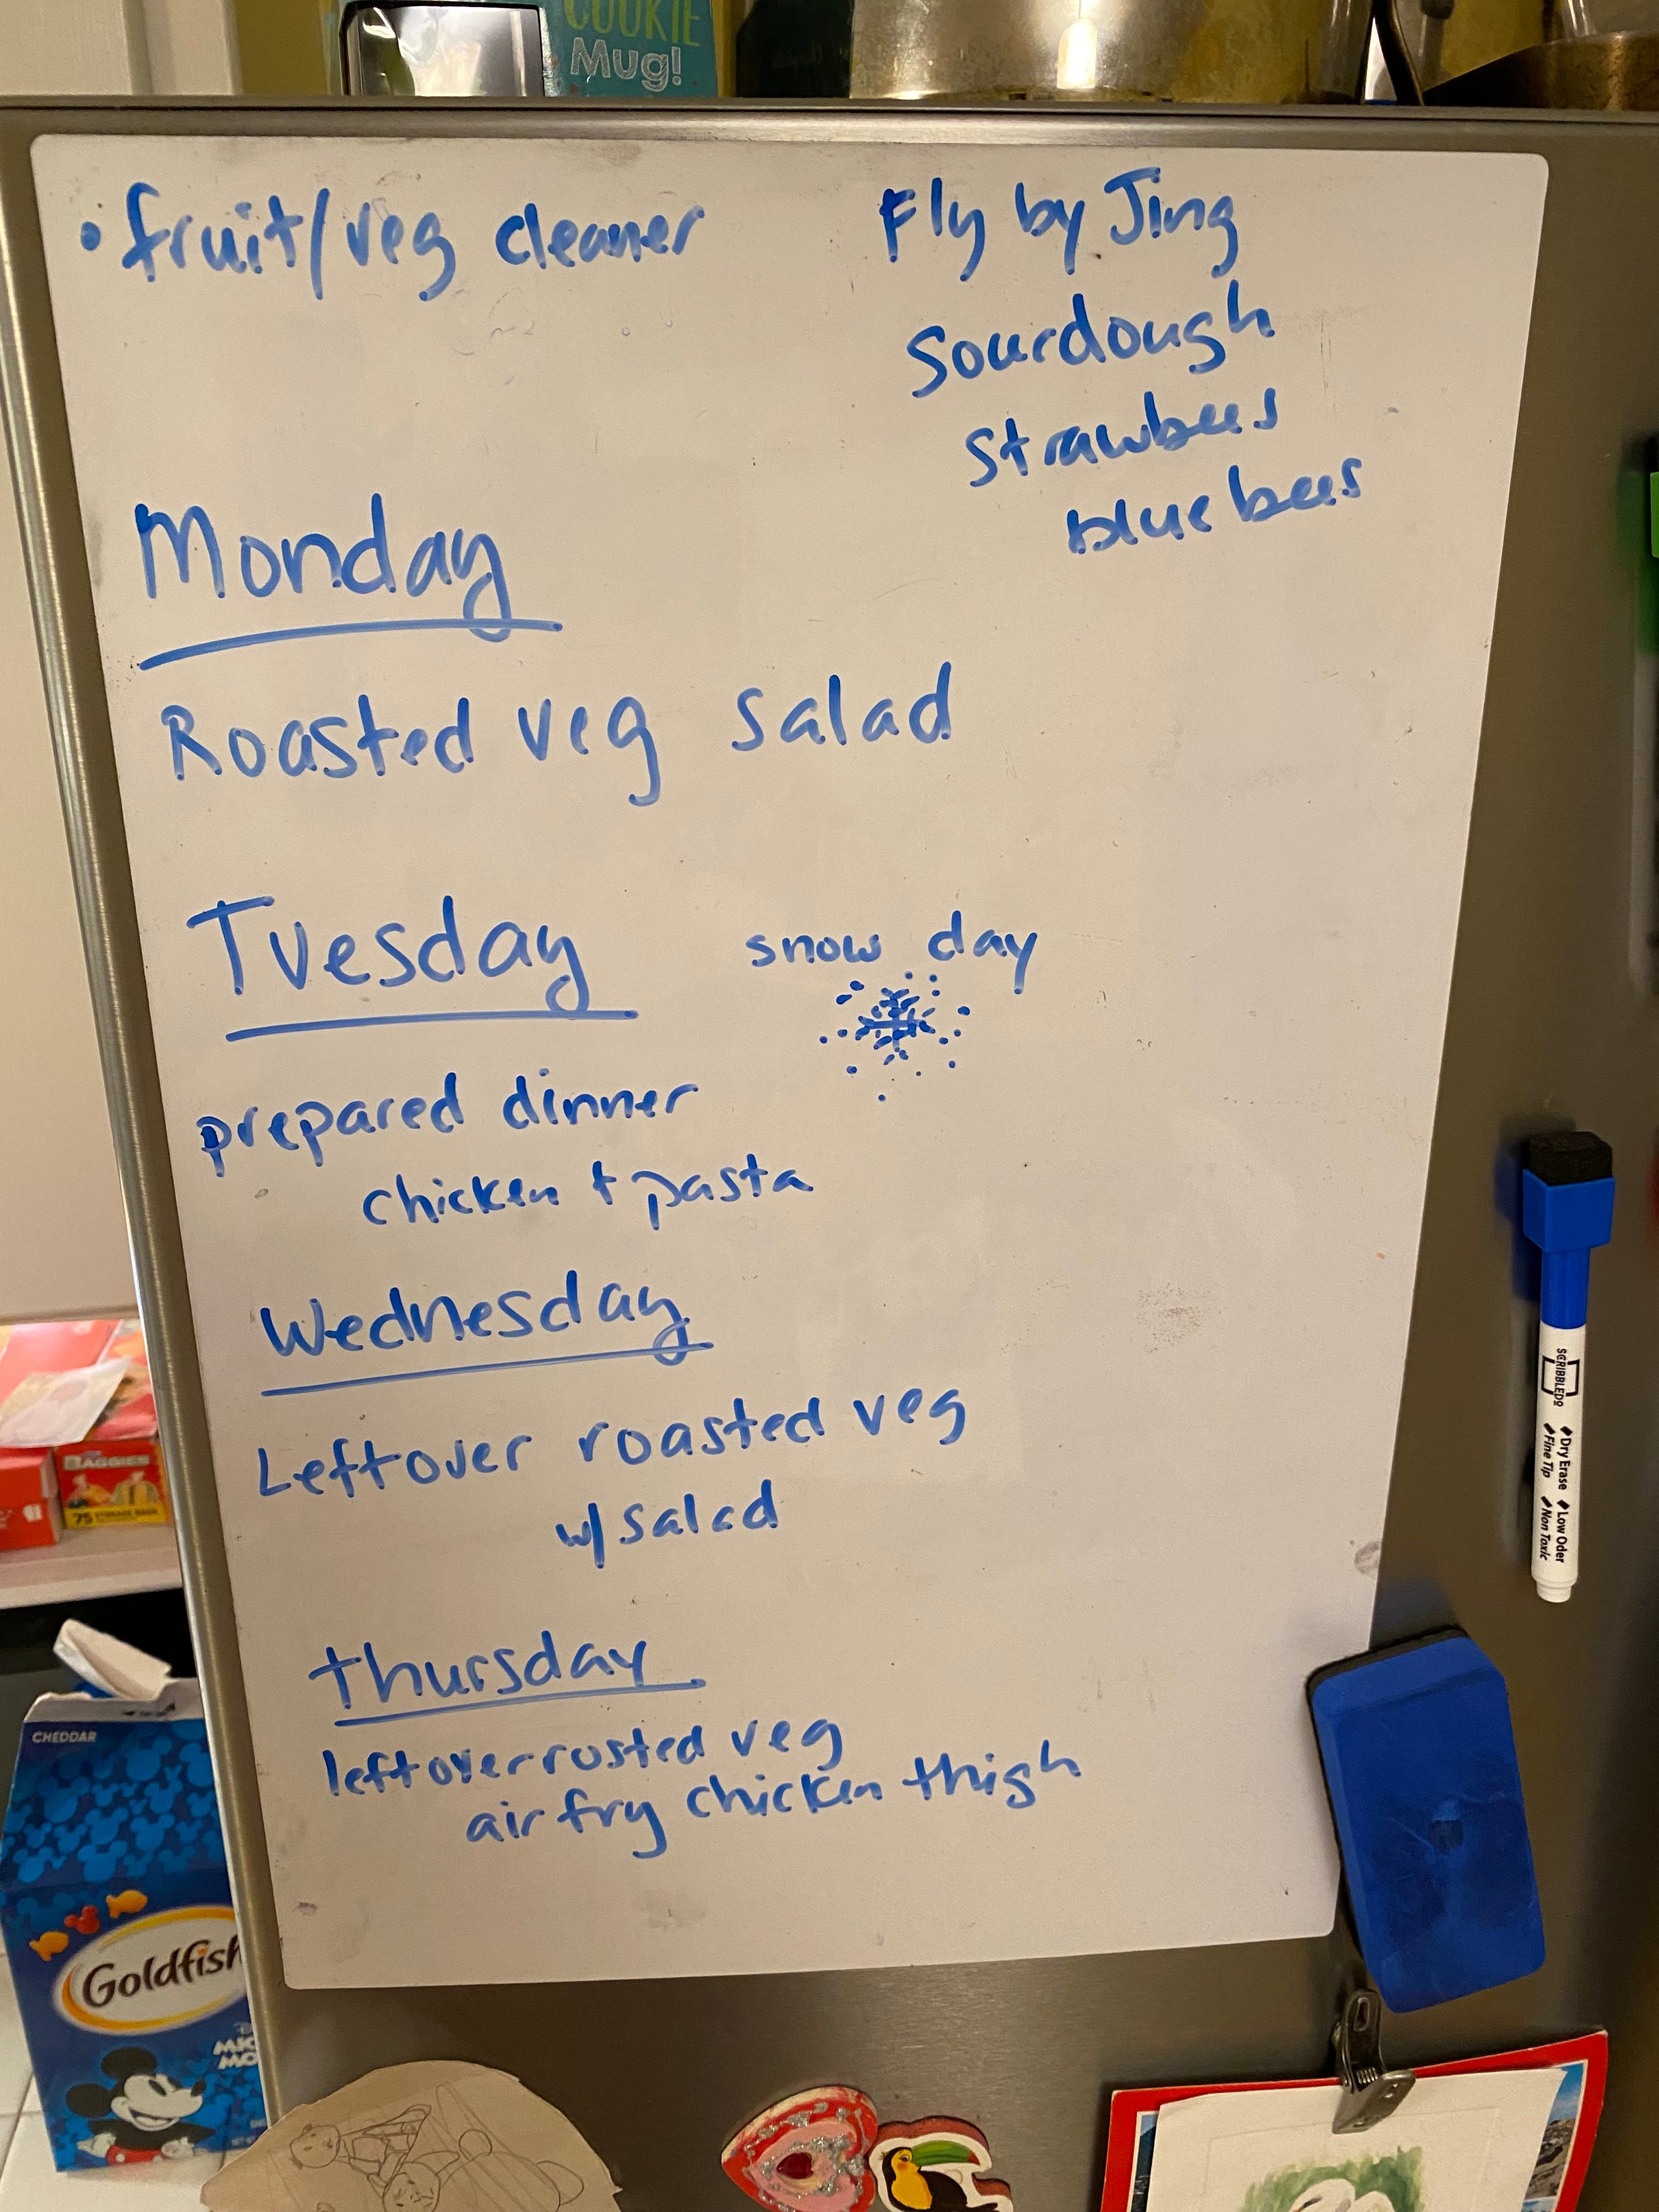 COOKIE
Mug!
• fruit/veg cleaner
Fly by Jing
Sourdough
Strawbees
bluebees
Monday
Roasted veg salad
Tuesday
snow day
prepared dinner
chicken + pasta
Wednesday
Leftover roasted veg
w/ salad
thursday
leftover rosted veg
air fry chicken thigh
SCRIBBLEDO
Dry Erase Low Oder
Fine Tip Non Toxic
BAGGIES
75 STORAGE BAGS
CHEDDAR
Goldfish